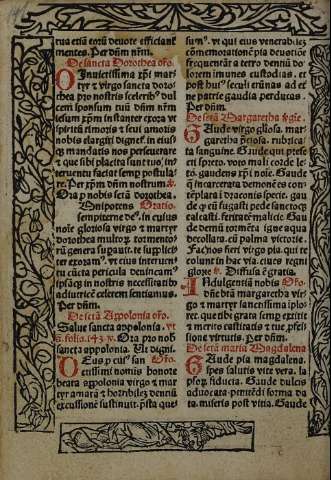 tua etiã eorũ deuote efficiant̃
mentes. Per dñm nr̃m.
De sancta Dorothea or̃o.
O Inuictissima xp̃i mar-
tyr & virgo sancta doro-
thea pro nostris sceleribꝰ dul
cem sponsum tuũ dñm nr̃m
iesum xp̃m instanter exora vt
spiritũ timoris & sui amoris
nobis elargiri dignet̃. in eiusqꝫ
mandatis nos perseuerare
& que sibi placita sunt tuo in-
teruentu faciat semp̃ postula-
re. Per xp̃m dñm nostrum &c.
Ora p̃ nobis sctã dorothea.
Omnipotens Oratio.
sempiterne deꝰ. in cuius
note gloriosa virgo & martyr
dorothea multorꝝ tormentoꝝ
rũ genera supauit. te supplici-
ter exoramꝰ. vt eius interuen-
tu cũcta pericula deuincamꝰ
ip̃sãqꝫ in nostris necessitatibꝰ
adiutricẽ celerem sentiamus.
Per dñm.
De sctã Appolonia or̃o.
Salue sancta appolonia. vt
s. folio. 143 Ora pro nob̃
sancta appolonia. Vt digni.
Deus p̃ cuiꝰ san Or̃o.
ctissimi nomiis honore
beata appolonia virgo & mar
tyr amarã & horribilẽ dentiũ
excussionẽ sustinuit. p̃sta q̃s
sumꝰ. vt qui eius venerabilẽ
cõmemorationẽ pia deuotiõe
frequentãt a tetro dentiũ do-
lorem imunes custodias. et
post huiꝰ seculi erũnas ad et̃
ne patrie gaudia perducas.
Per dñm.
De sctã Margaretha vg̃ie.
Gaude virgo gl̃iosa. mar-
garetha p̃ciosa. rubrica-
ta sanguine. Gaude qui pres-
si spreto. voto mali corde le-
to. gaudens xp̃i noie. Gaude
q̃ incarcerata demonẽ es con-
tẽplata ĩ draconis specie. gau
de q̃ crũ fugasti pede sanctoqꝫ
calcasti. feritatẽ malicie. Gau
de demũ tormẽta igne aqua
decollata. cũ palma victorie.
Fac nos fieri virgo pia. qui te
colunt in hac via. ciues regni
glorie &. Diffusa ẽ gratia.
Indulgentiã nobis Or̃o.
dñe btã margaretha vir-
go & martyr sanctissima iplo-
ret. que tibi grata semp̃ extitit
& merito castitatis & tue p̃fes-
sione virtutis. Per dñm.
De sctã maria Magdalena
Gaude pia magdalena.
spes salutis vite vena. la-
psorꝝ fiducia. Gaude dulcis
aduocata penitẽdi forma da
ta. miseris post vitia. Gaude